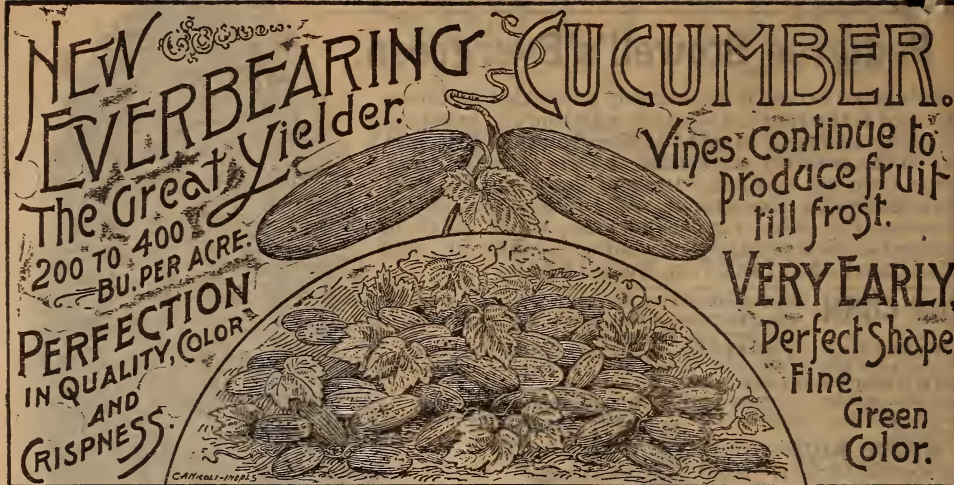 NEW
EVERBEARING
CUCUMBER.
The Great Yielder.
200 TO 400
BU. PER ACRE.
PERFECTION
IN QUALITY, COLOR
AND
CRISPNESS.
Vines continue to
produce fruit
till frost.
VERY EARLY,
Perfect Shape
Fine
Green
Color.